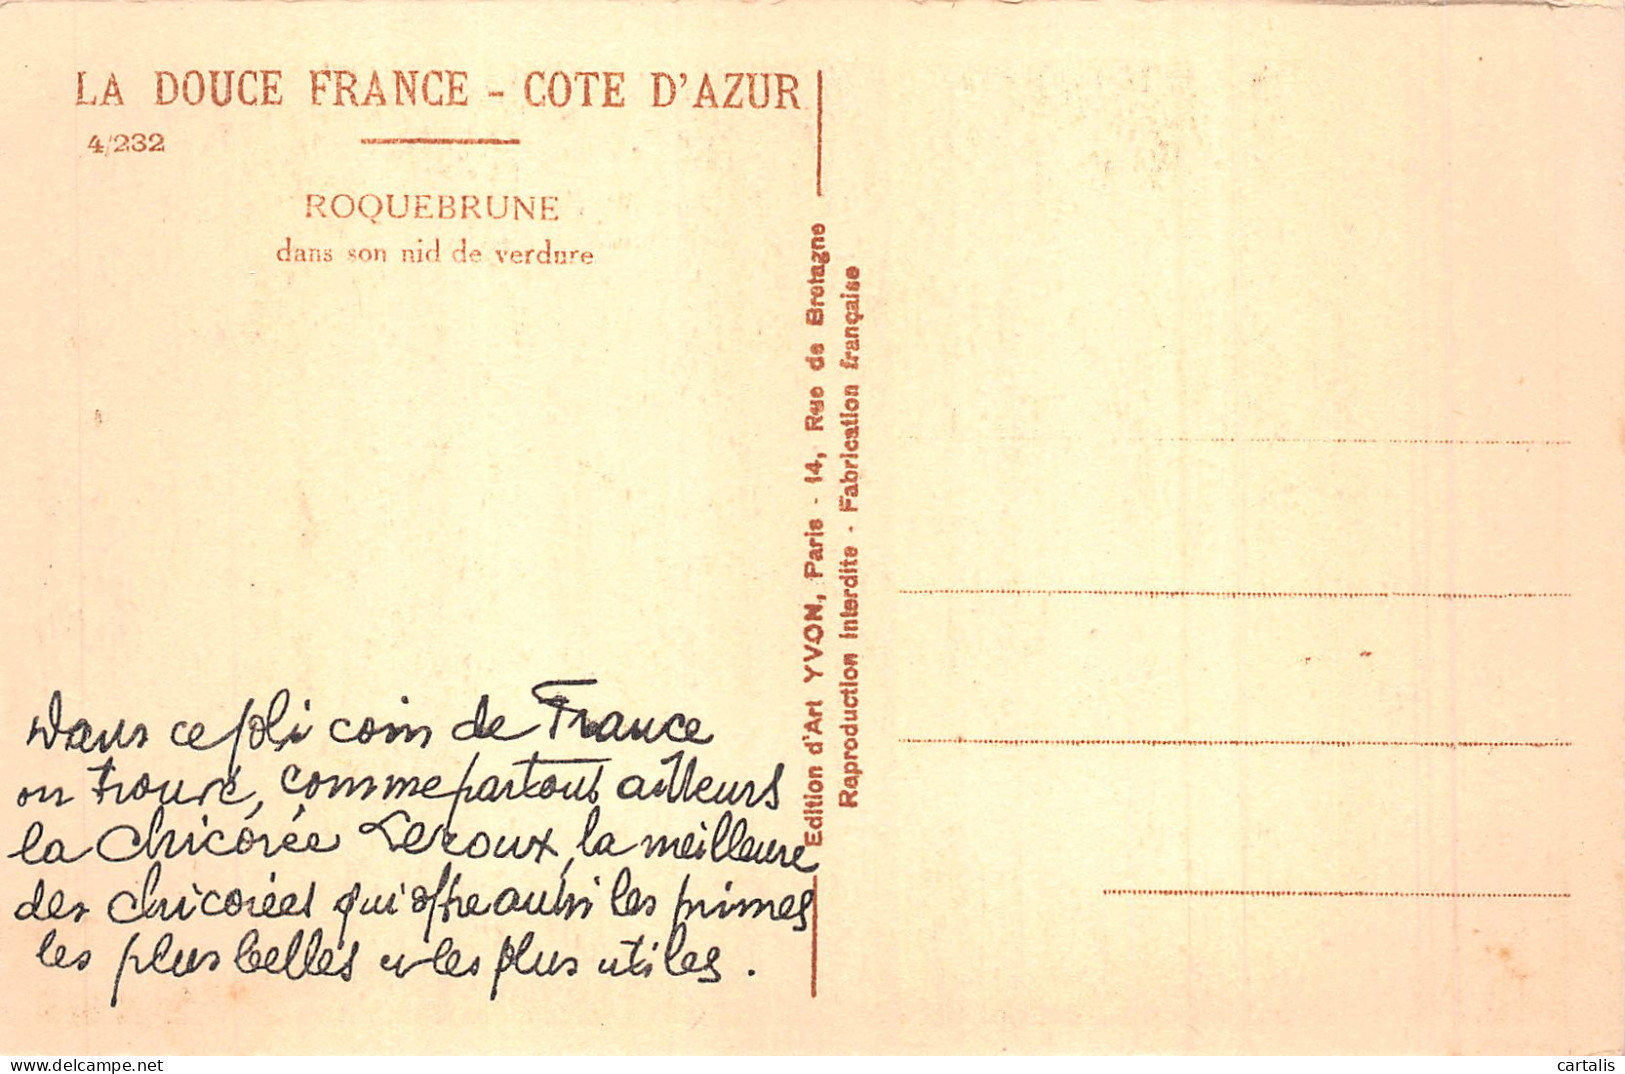 LA DOUCE FRANCE - COTE D'AZUR
4/232
ROQUEBRUNE
dans son nid de verdure
Edition d'Art YVON, Paris - 14, Rue de Bretagne
Reproduction interdite - Fabrication française
Dans ce joli coin de France
on trouve, comme partout ailleurs
la Chicorée Leroux, la meilleure
des chicorées qui offre aussi les primes
les plus belles et les plus utiles.
delcampe.net
cartalis